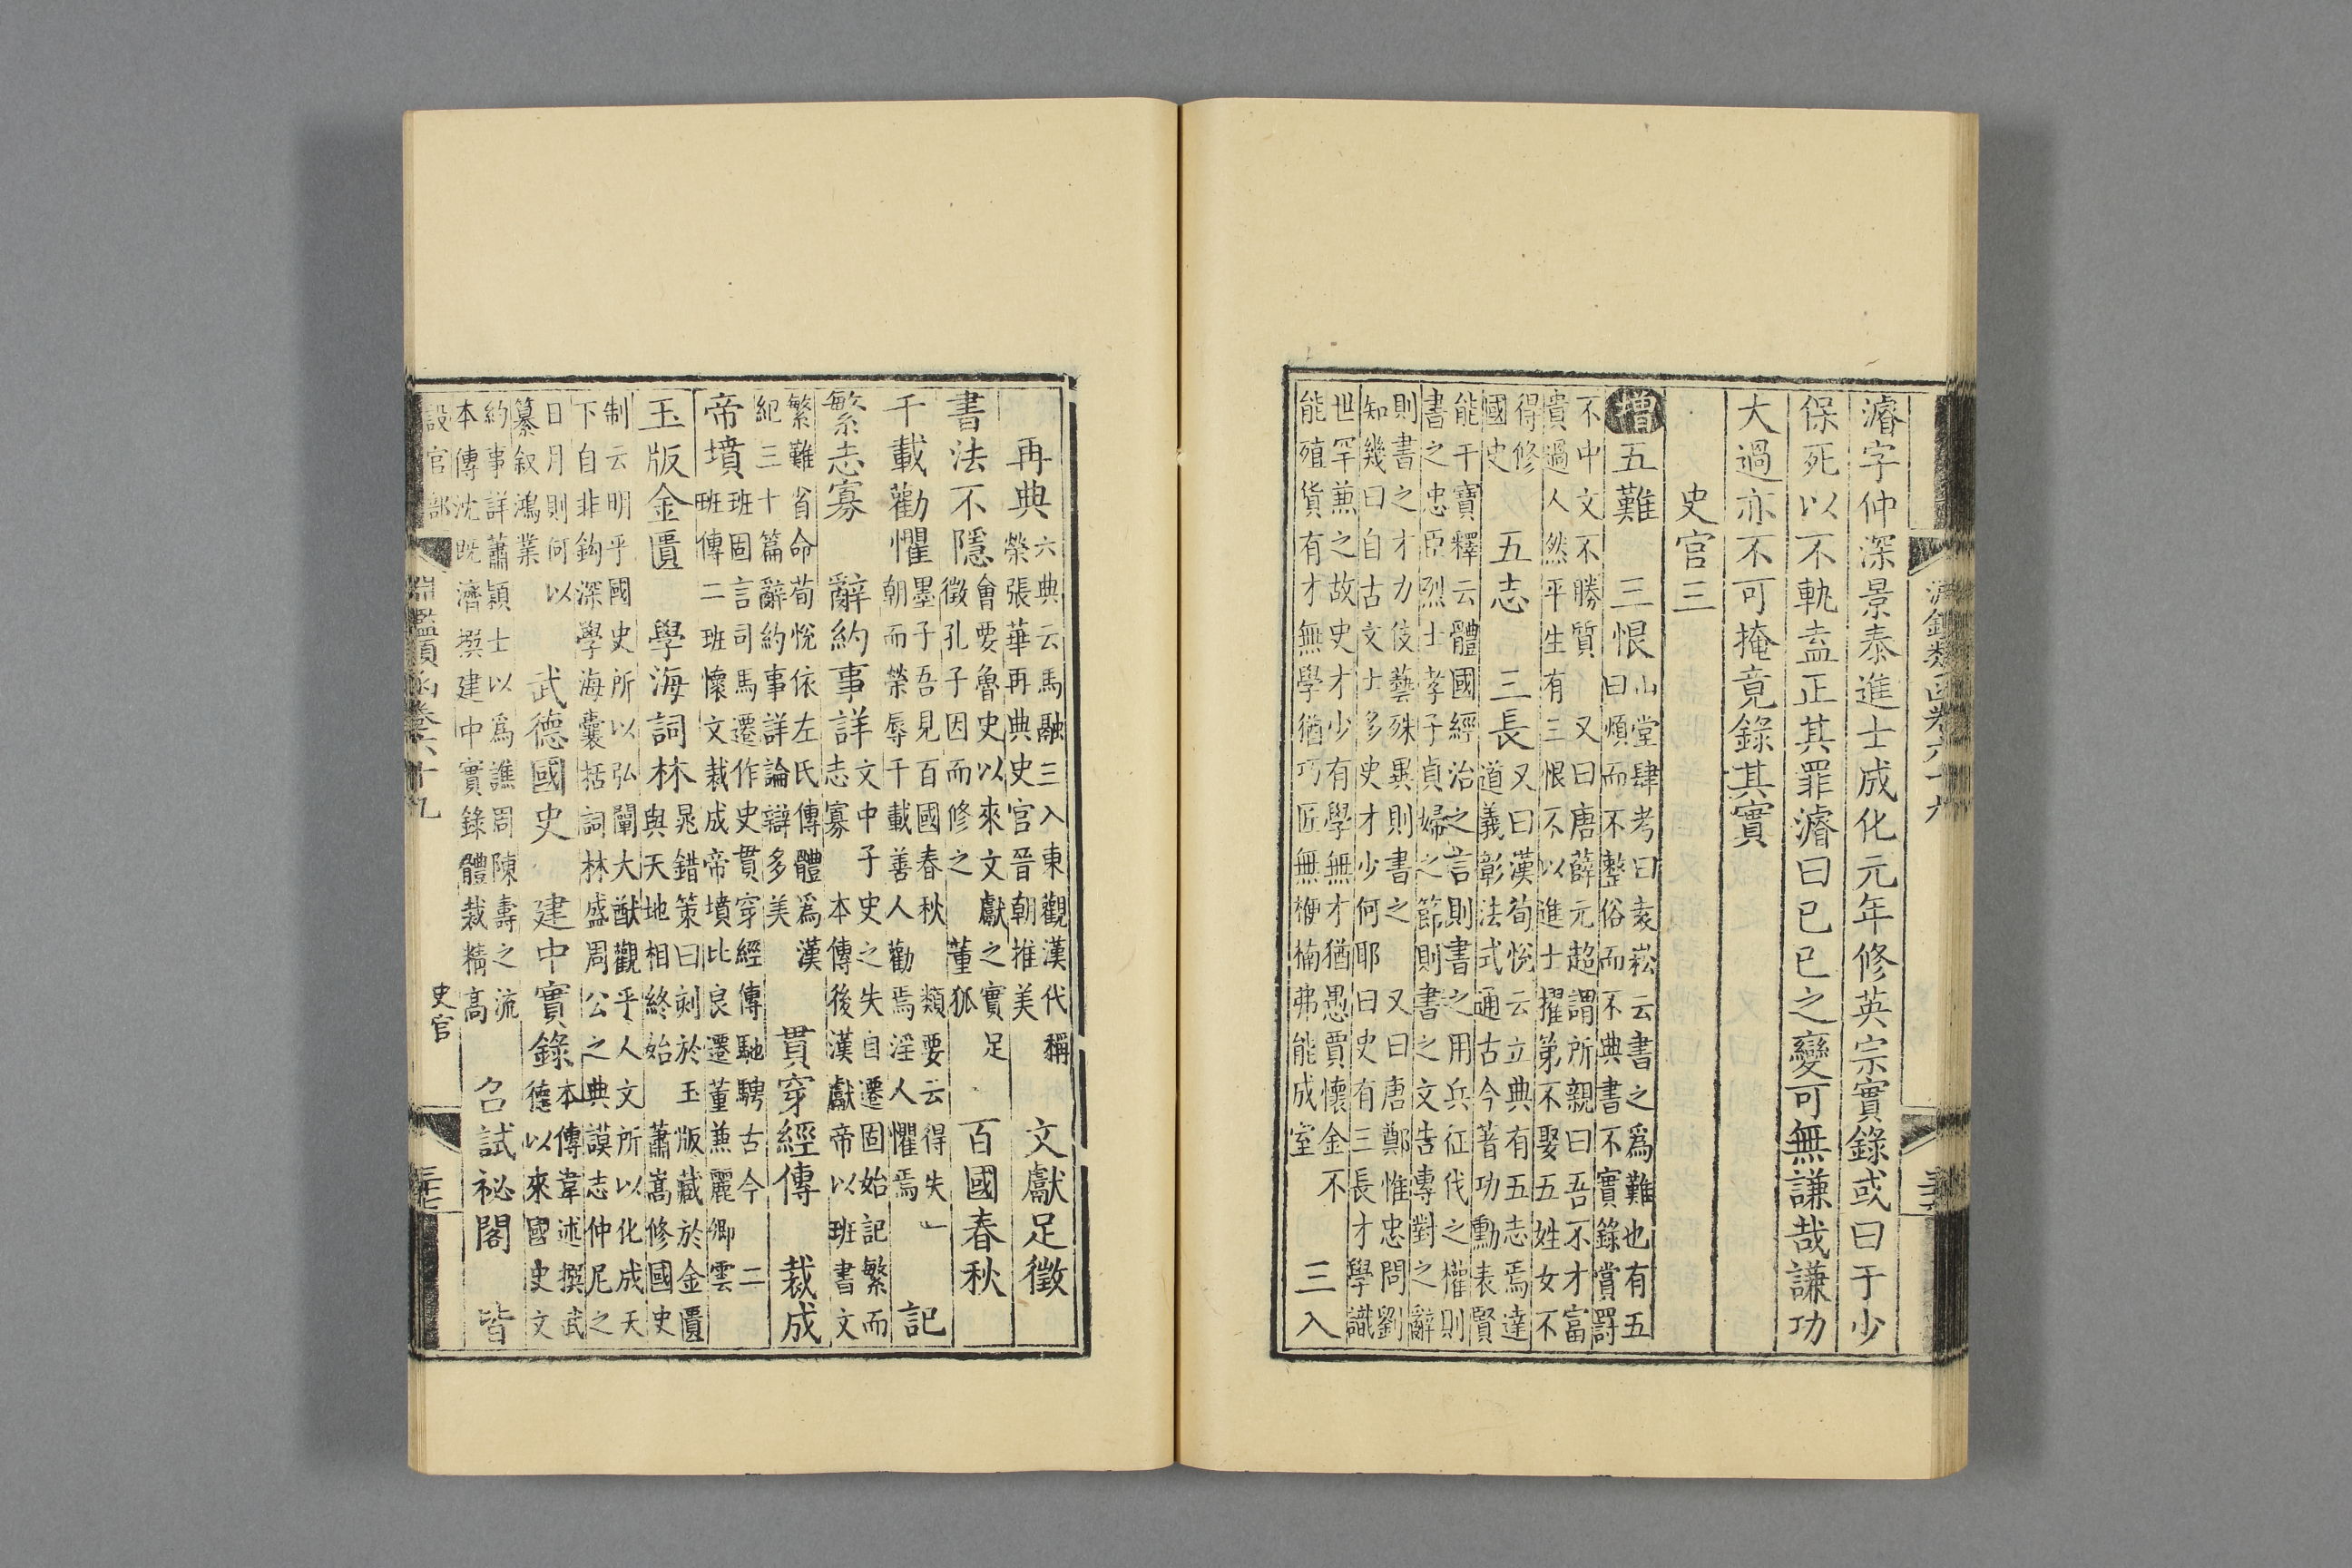 淵鑑類函卷六十九
濬字仲深景泰進士成化元年修英宗實錄或曰于少
保死以不軌盍正其罪濬曰已巳之變可無謙哉謙功
大過亦不可掩竟錄其實
史官三
增五難 三恨
山堂肆考曰袁崧云書之爲難也有五
曰煩而不整俗而不典書不實錄賞罰
不中文不勝質 又曰唐薛元超謂所親曰吾不才富
貴過人然平生有三恨不以進士擢第不娶五姓女不
得修
國史
五志 三長
又曰漢荀悅云立典有五志焉達
道義彰法式通古今著功勳表賢
能干寶釋云體國經治之言則書之用兵征伐之權則
書之忠臣烈士孝子貞婦之節則書之文告專對之辭
則書之才力伎藝殊異則書之 又曰唐鄭惟忠問劉
知幾曰自古文士多史才少何耶曰史有三長才學識
世罕兼之故史才少有學無才猶愚賈懷金不
能殖貨有才無學猶巧匠無楩楠弗能成室
三入
再典
六典云馬融三入東觀漢代稱
榮張華再典史官晉朝推美
文獻足徵
書法不隱
會要魯史以來文獻之實足
徵孔子因而修之 董狐
百國春秋
千載勸懼
墨子吾見百國春秋 類要云得失一
朝而榮辱千載善人勸焉淫人懼焉
記
繁志寡 辭約事詳
文中子史之失自遷固始記繁而
志寡 本傳後漢獻帝以班書文
繁難省命荀悅依左氏傳體爲漢
紀三十篇辭約事詳論辯多美
貫穿經傳 裁成
帝墳
班固言司馬遷作史貫穿經傳馳騁古今 二
班傳二班懷文裁成帝墳比良遷董兼麗卿雲
玉版金匱 學海詞林
晁錯策曰刻於玉版藏於金匱
與天地相終始 蕭嵩修國史
制云明乎國史所以弘闡大猷觀乎人文所以化成天
下自非鈎深學海囊括詞林盛周公之典謨志仲尼之
日月則何以
纂叙鴻業
武德國史 建中實錄
本傳韋述撰武
德以來國史文
約事詳蕭穎士以爲譙周陳壽之流
本傳沈既濟撰建中實錄體裁精高
召試祕閣 皆
設官部 淵鑑類函卷六十九 史官 三十七